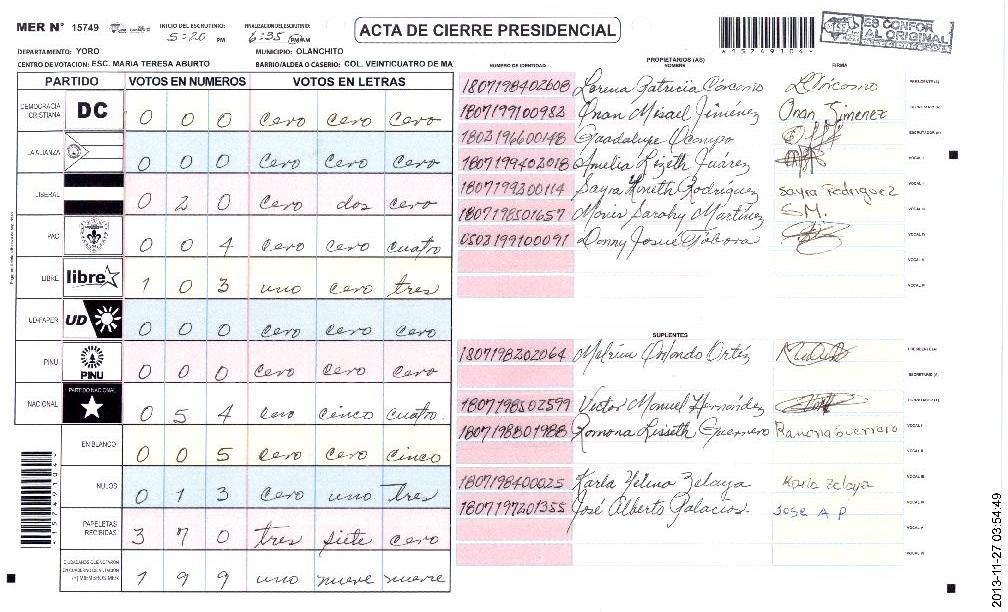 MER N° 15749
INICIO DEL ESCRUTINIO:
5:20 PM
FINALIZACION ESCRUTINIO:
6:35 PM AM
ACTA DE CIERRE PRESIDENCIAL
ES CONFOR
AL ORIGINAL
DEPARTAMENTO: YORO
MUNICIPIO: OLANCHITO
CENTRO DE VOTACION: ESC. MARIA TERESA ABURTO
BARRIO/ALDEA O CASERIO: COL. VEINTICUATRO DE MA
PARTIDO VOTOS EN NUMEROS VOTOS EN LETRAS
DEMOCRACIA CRISTIANA DC 0 0 0 cero cero cero
LA ALIANZA 0 0 0 cero cero cero
LIBERAL 0 2 0 cero dos cero
PAC 0 0 4 cero cero cuatro
LIBRE libre 1 0 3 uno cero tres
UD-FAPER UD 0 0 0 cero cero cero
PINU PINU 0 0 0 cero cero cero
NACIONAL PARTIDO NACIONAL 0 5 4 cero cinco cuatro.
EN BLANCO 0 0 5 cero cero cinco
NULOS 0 1 3 cero uno tres
PAPELETAS RECIBIDAS 3 7 0 tres siete cero
CIUDADANOS QUE VOTARON EN CUADERNO DE VOTACION (+) MIEMBROS MER 1 9 9 uno nueve nueve
PROPIETARIOS (AS)
NUMERO DE IDENTIDAD NOMBRE FIRMA
1807198402608 Lorena Patricia Cárcamo PRESIDENTE(A)
1807199100982 Onan Misael Jiménez Onan Jimenez SECRETARIO(A)
1803196600148 Guadalupe Ocampo ESCRUTADOR (A)
1807199402018 Amelia Lizeth Juárez VOCAL I
1807199200114 Sayra Rodríguez Sayra Rodriguez VOCAL II
1807198501657 Sarahy Martínez S.M. VOCAL III
0502199100091 Donny Josué VOCAL IV
VOCAL V
VOCAL VI
SUPLENTES
1807198202064 Orlando Ortíz PRESIDENTE(A)
SECRETARIO (A)
1807198502599 Victor Manuel Hernández ESCRUTADOR(A)
1807198801988 Ramona Lisseth Guerrero Ramona Guerrero VOCAL I
VOCAL II
1807198400025 Karla Yelina Zelaya Karla Zelaya VOCAL III
1807197201355 José Alberto Palacios. JOSE A P VOCAL IV
VOCAL V
VOCAL VI
2013-11-27 03:54:49